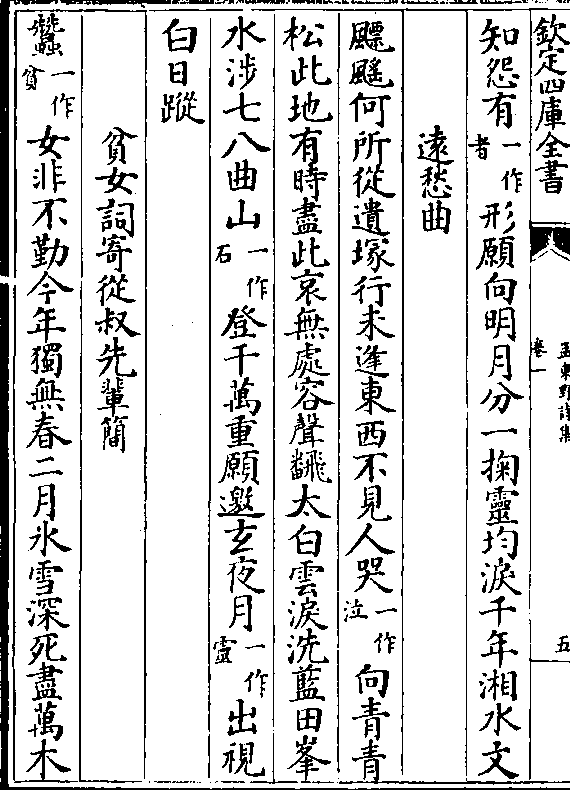 欽定四庫全書
孟東野詩集
卷一
五
知怨有一作者形願向明月分一掬靈均淚千年湘水文
遠愁曲
飄颻何所從遺塚行未逢東西不見人哭一作泣向青青
松此地有時盡此哀無處容聲飜太白雲淚洗藍田峯
水涉七八曲山一作石登千萬重願邀玄夜月一作靈出視
白日蹤
貧女詞寄從叔先輩簡
蠶一作貧女非不勤今年獨無春二月氷雪深死盡萬木